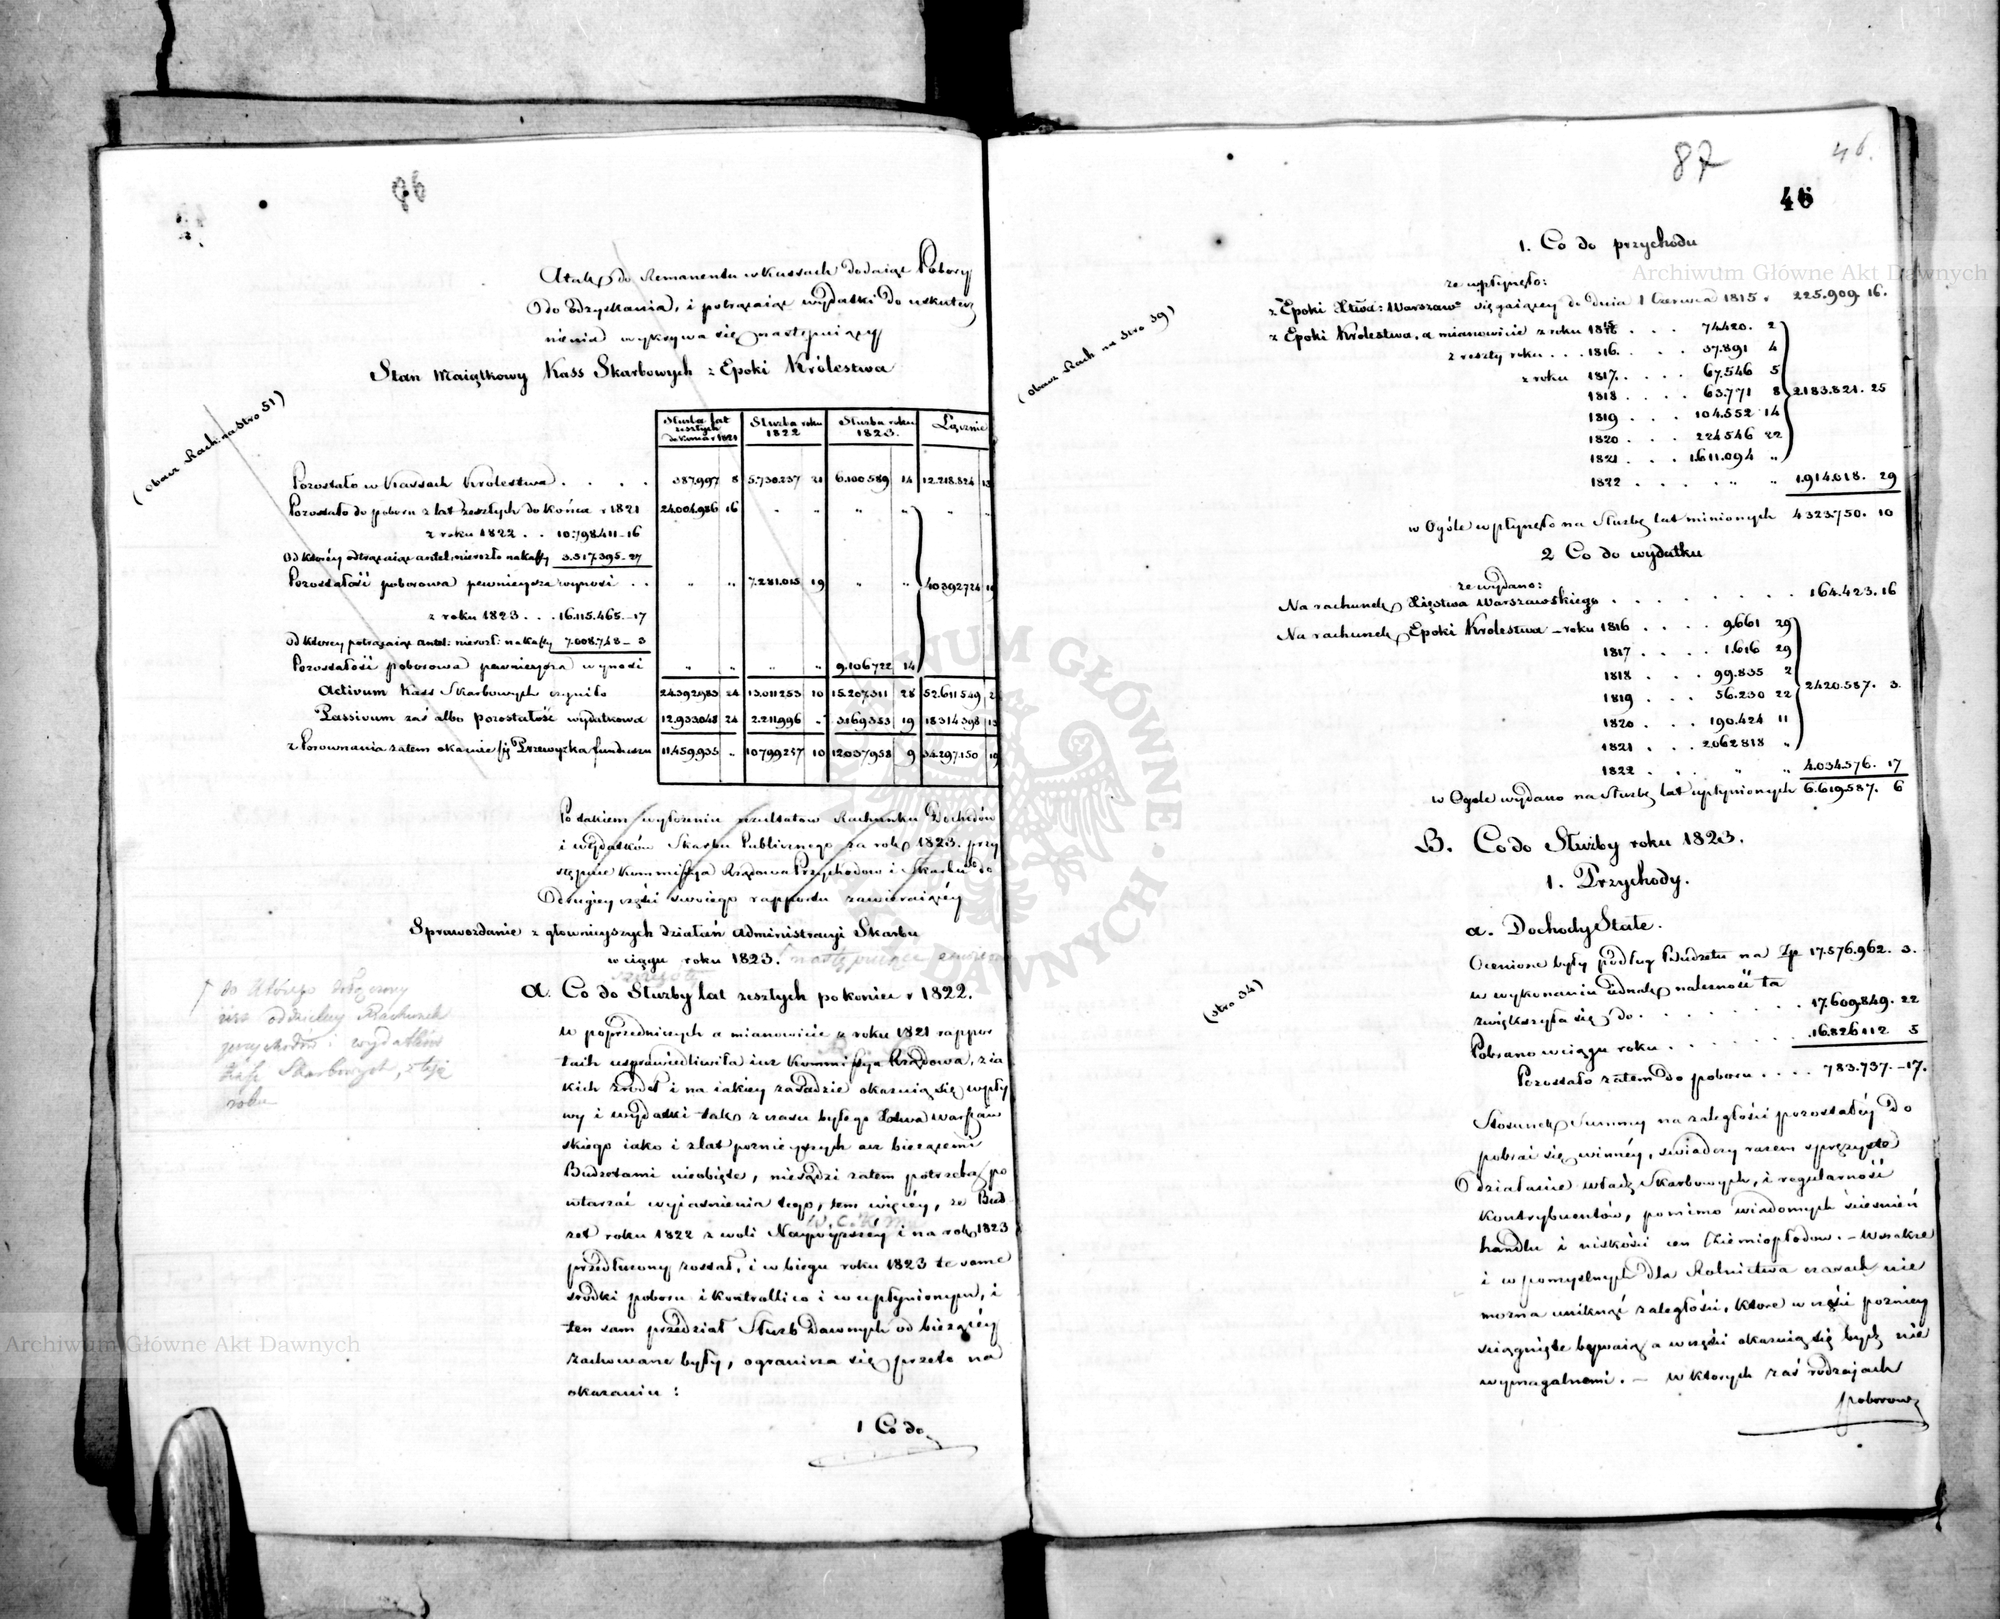 86
A tak do Remanentu w Kassach dodaiąc Pobory
do odzyskania, i potrącaiąc wydatki do uskutecz
nienia wykrywa się następuiący
Stan Maiątkowy Kass Skarbowych z Epoki Królestwa
(Obacz Rach: na Stro 51)
Służba lat zeszłych do końca r 1821 | Służba roku 1822 | Służba roku 1823. | Łącznie
Pozostało w Kassach Królestwa . . . . 387.997 8 | 5.730.237 21 | 6.100.589 14 | 12.218.824 13
Pozostało do poboru z lat zeszłych do końca r 1821 24.004.986 16 | " " | " " | " "
z roku 1822 . . 10.798.411 - 16
Od którey odtrącaiąc antel: nieweszło na kassy 3.517.395 - 27
Pozostałość poborowa pewnieysza wynosi . . " " | 7.281.015 19 | " " | 40.392.724 19
z roku 1823 . . . 16.115.465. - 17
Od którey potrącaiąc antel: nieweszł: na kassy 7.008.743 - 3
Pozostałość poborowa pewnieysza wynosi " " | " " | 9.106.722 14
Activum Kass Skarbowych czyniło 24.392.983 24 | 13.011.253 10 | 15.207.311 28 | 52.611.549 2
Passivum zaś albo pozostałość wydatkowa 12.933.048 24 | 2.211.996 " | 3.169.353 19 | 18.314.398 13
z Porównania zatem okazuie się Przewyżka funduszu 11.459.935 " | 10.799.257 10 | 12.037.958 9 | 34.297.150 19
Po takiem wyłożeniu rezultatow Rachunku Dochodów
i wydatków Skarbu Publicznego za rok 1823. przy
stępuie Kommissya Rządowa Przychodow i Skarbu do
drugiey części swoiego rapportu zawieraiącey
Sprawozdanie z głownieyszych działań Administracyi Skarbu
w ciągu roku 1823. następuiące
do którego dołączony
iest oddzielny Rachunek
przychodów i wydatków
Kass Skarbowych, z tegoż
roku
A. Co do Służby lat zeszłych po koniec r 1822.
W poprzedniczych a mianowicie z roku 1821 rappor
tach usprawiedliwiła iuż Kommissya Rządowa, z ia
kich źrodeł i na iakiey zasadzie okazuią się wpły
wy i wydatki tak z czasu byłego Xstwa Warszaw
skiego iako i z lat poznieyszych aż bieżącemi
Budżetami nieobięte, niesądzi zatem potrzeby po
wtarzać wyiaśnienia tego, tem więcey, że Bud
żet roku 1822 z woli Naywyższey i na rok 1823
przedłużony został, i w biegu roku 1823 te same
srodki poboru i kontrolli co i w upłynionym, i
ten sam przedział Służb dawnych od bieżącey
zachowane były, ogranicza się przeto na
okazaniu:
1 Co do
87
46.
46
1. Co do przychodu
(Obacz Rach na Stro 39)
że wpłynęło:
z Epoki Xtwa: Warszaw: sięgaiącey do dnia 1 Czerwca 1815 r 225.909. 16.
z Epoki Krolestwa, a mianowicie z roku 1815/16 . . . 74.420. 2
z reszty roku . . . 1816. . . . 37.891 4
z roku 1817. . . . 67.546 5
1818 . . . . 63.771 8 | 2.183.821. 25
1819 . . . 104.552 14
1820 . . . 224.546 22
1821 . . . 1.611.094 "
1822 . . . " " 1.914.018. 29
w Ogóle wpłynęło na Służbę lat minionych 4.323.750. 10
2 Co do wydatku
że wydano:
Na rachunek Xięstwa Warszawskiego . . . . . . . 164.423. 16
Na rachunek Epoki Krolestwa - roku 1816 . . . . 9.661 29
1817 . . . . 1.616 29
1818 . . . 99.835 2
1819 . . . 56.230 22 | 2.420.587. 3.
1820 . . . 190.424 11
1821 . . . 2.062.818 "
1822 . . . " " 4.034.576. 17
w Ogole wydano na Służbę lat upłynionych 6.619.587. 6
B. Co do Służby roku 1823.
1. Przychody.
a. Dochody Stałe.
(Stro 34)
Ocenione były podług Budżetu na Zp 17.576.962. 3.
w wykonaniu iednak należność ta
zwiększyła się do . . . . . . . . 17.609.849. 22
Pobrano w ciągu roku . . . . . . . 16.826.112 5
Pozostało zatem do poboru . . . . 783.737. - 17.
Stosunek Summy na zaległości pozostałéy do
pobrać się winnéy, swiadczy razem sprężyste
działanie władz Skarbowych, i regularność
Kontrybuentów, pomimo wiadomych scieśnień
handlu i niskości cen Ziemiopłodow. - Wszakże
i w pomyślnych dla Rolnictwa czasach nie
można uniknąć zaległości, ktore w części pozniey
sciągnięte bywaią a w części okazuią się bydź nie
wymagalnemi. - W ktorych zaś rodzaiach
poborow
Archiwum Główne Akt Dawnych
Archiwum Główne Akt Dawnych
ARCHIWUM GŁÓWNE AKT DAWNYCH